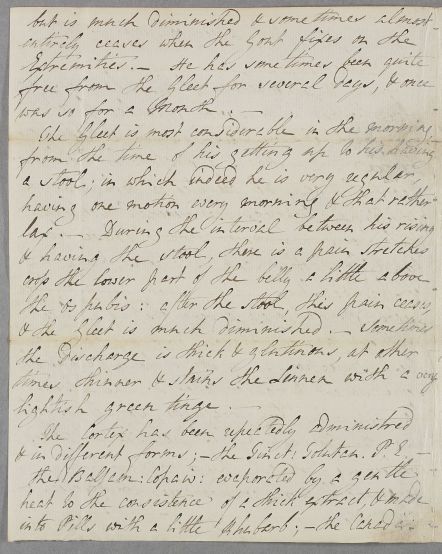 but is much diminished & sometimes almost
entirely ceases when the Gout fixes on the
Extremities. — He has sometimes been quite
free from the Gleet for several days, & once
was so for a Month. —
The Gleet is most considerable in the morning,
from the time of his getting up to his having
a stool; in which indeed he is very regular,
having one motion every morning & that rather
lax. — During the interval between his rising
& having the stool, there is a pain stretches
cross the lower part of the belly a little above
the os pubis: after the stool, this pain ceases,
& the Gleet is much diminished. — Sometimes
the Discharge is thick & glutinous, at other
times, thinner & stains the Linnen with a very
lightish green tinge. —
The Cortex has been repeatedly administred
& in different forms; — the Tinct: Tolutan. P. E. —
the Balsam: Copaiv: evaporated by a gentle
heat to the consistence of a thick extract, & made
into Pills with a little Rhubarb; — the Canada